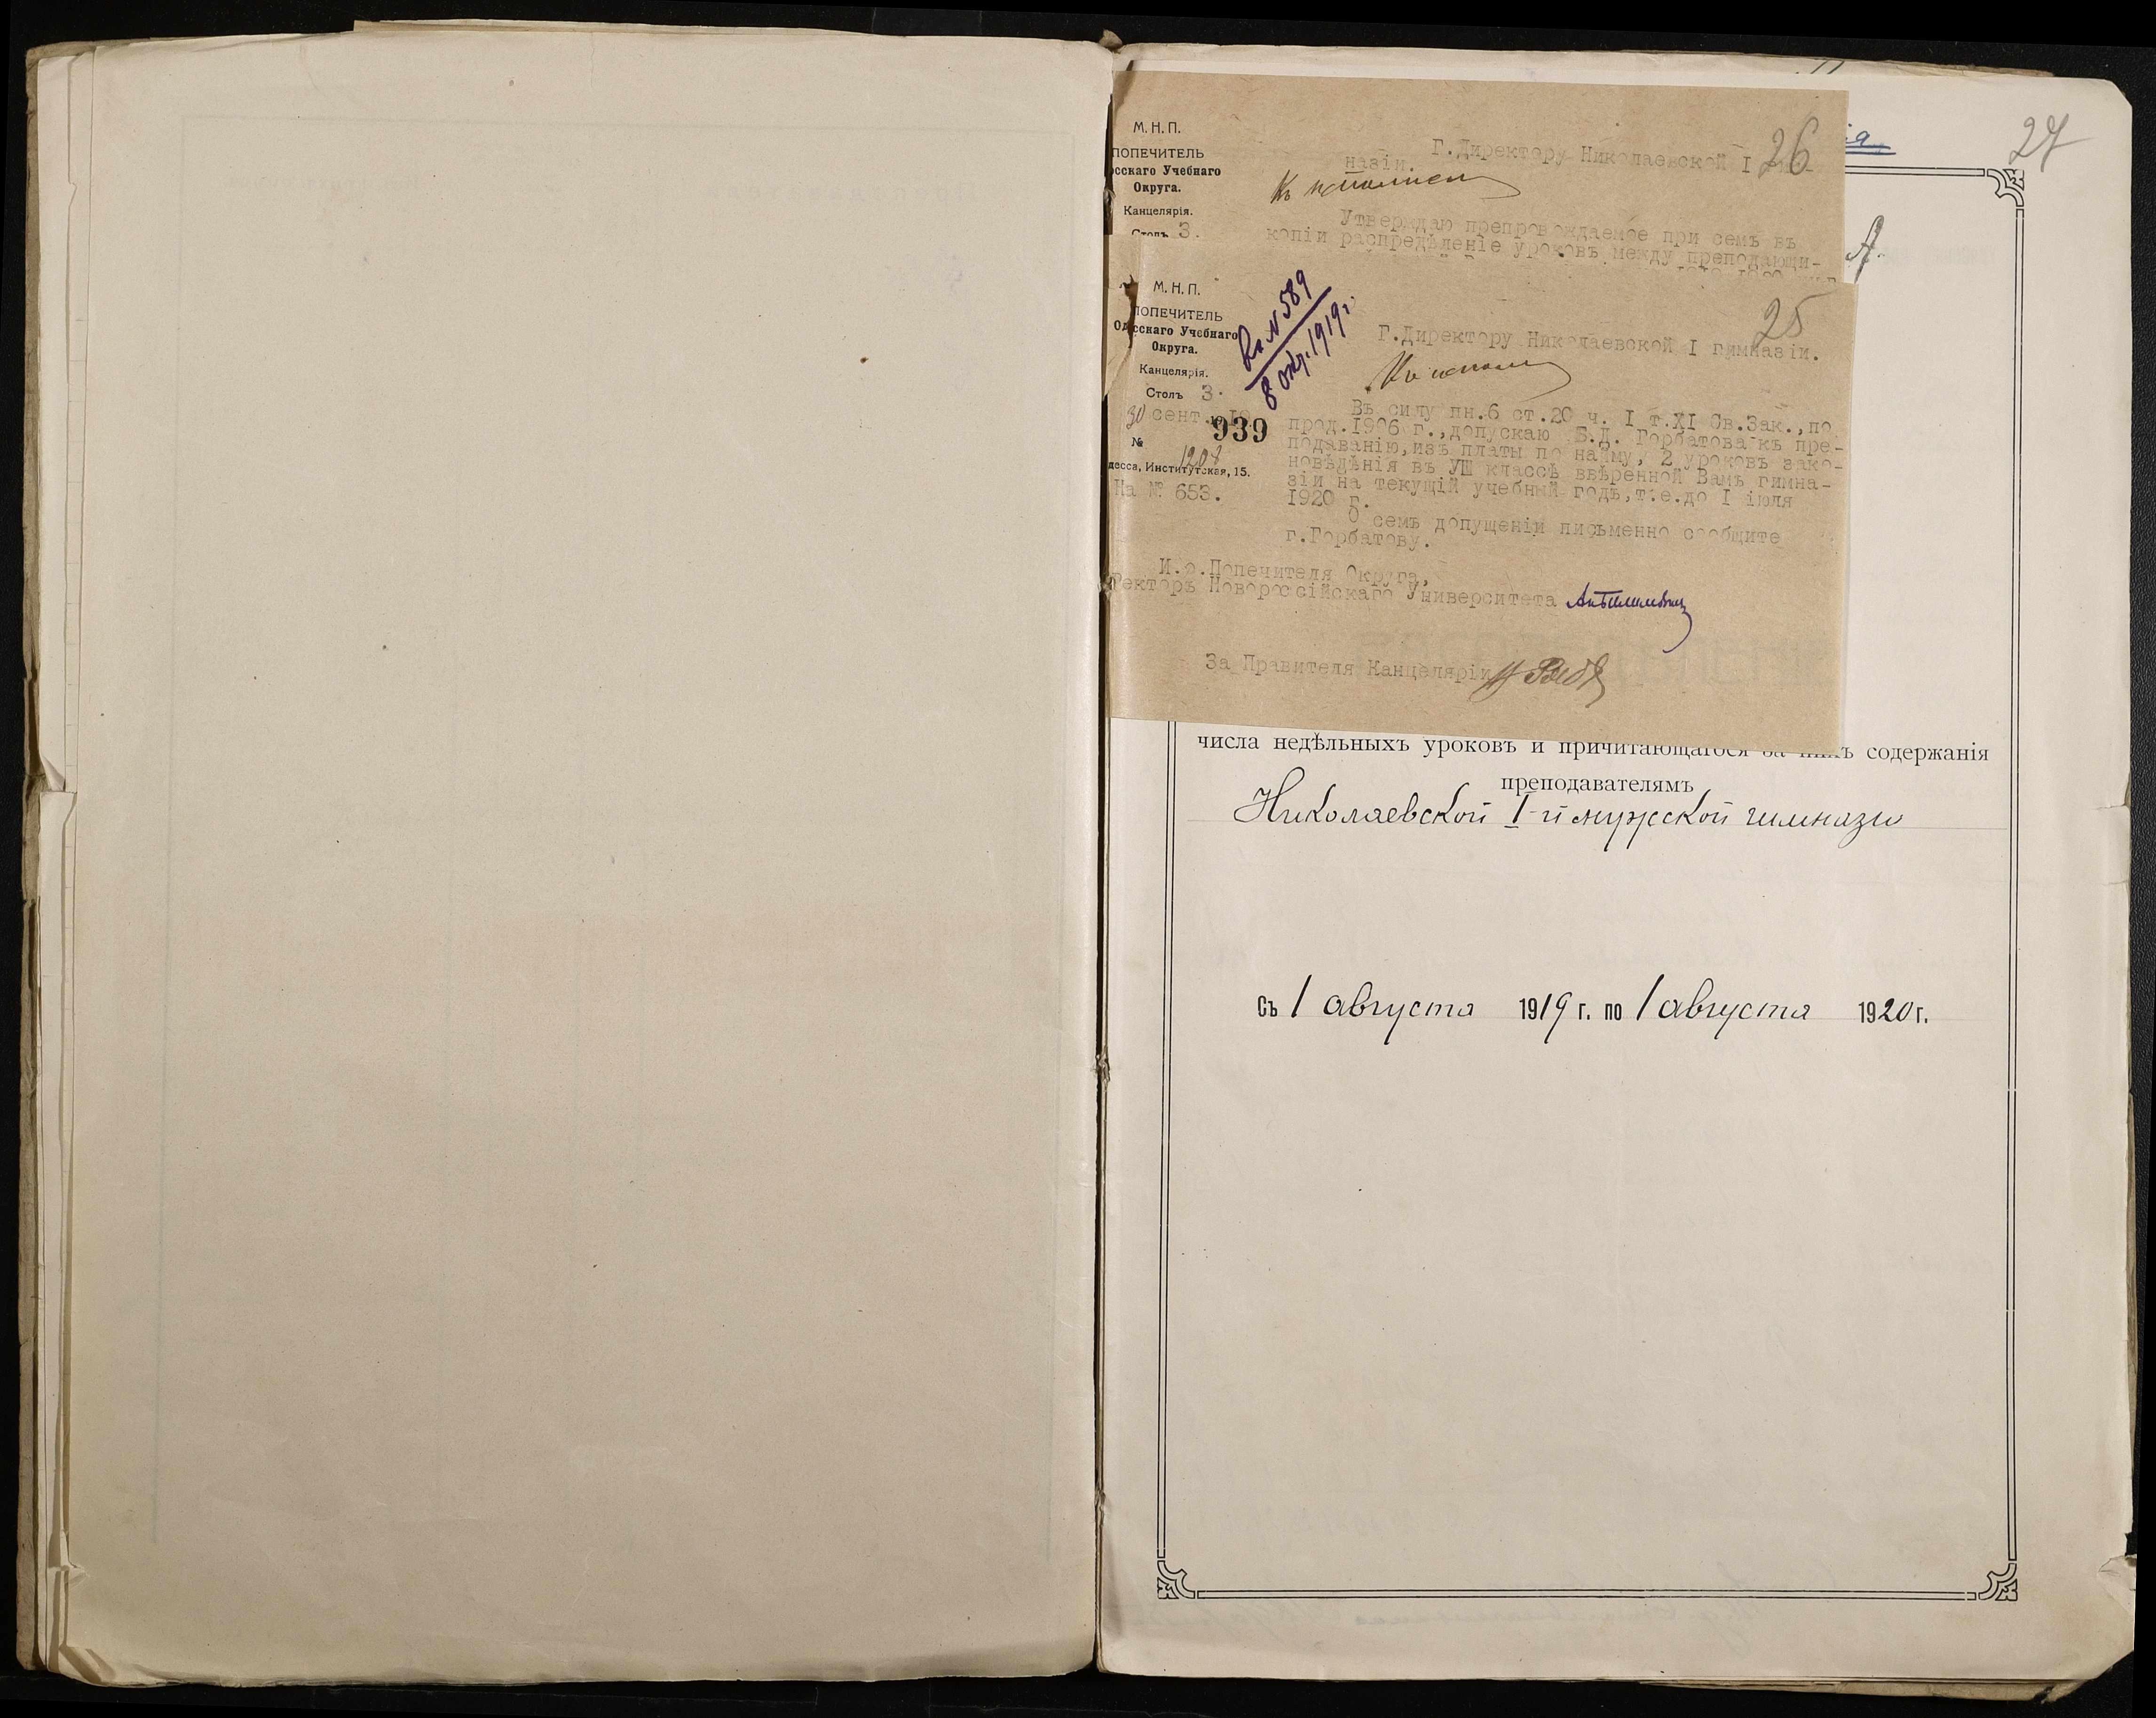 27
М. Н. П.
ПОПЕЧИТЕЛЬ
сскаго Учебнаго
Округа.
Канцелярія.
Столъ 3.
26
Г.Директору Николаевской I
назіи.
Утверждаю препровождаемое при семъ въ
копіи распредѣленіе уроковъ между преподающи-
М. Н. П.
ПОПЕЧИТЕЛЬ
Одесскаго Учебнаго
Округа.
Канцелярія.
Столъ 3.
30 сент. 19
939
№ 1208
десса, Институтская, 15.
На № 653.
Вх. № 589
8 окт. 1919 г.
25
Г.Директору Николаевской I гимназіи.
Въ силу пн.6 ст.20 ч. I т.XI Св.Зак.,по
прод.1906 г.,допускаю Б.Д. Горбатова къ пре-
подаванію,изъ платы по найму, 2 уроковъ зако-
новѣдѣнія въ УШ классѣ ввѣренной Вамъ гимна-
зіи на текущій учебный годъ,т.е.до I іюля
1920 г.
О семъ допущеніи письменно сообщите
г.Горбатову.
И.о.Попечителя Округа,
Ректоръ Новороссійскаго Университета
За Правителя Канцеляріи
числа недѣльныхъ уроковъ и причитающагося за нихъ содержанія
преподавателямъ
Николаевской I-й мужской гимназіи
Съ 1 августа 1919 г. по 1 августа 1920 г.